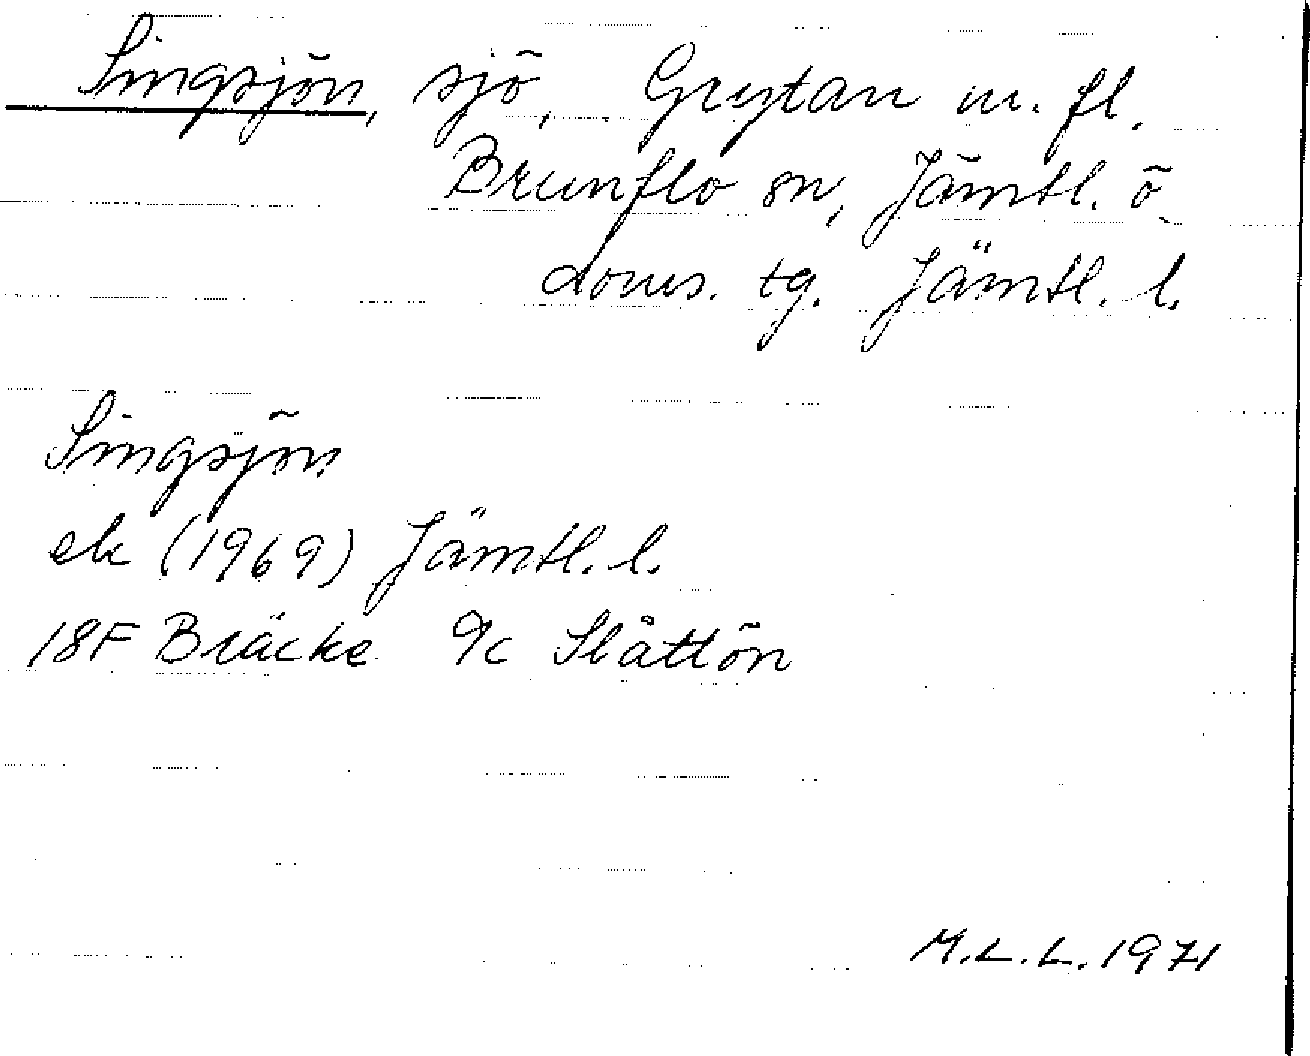 Singsjön, sjö, Grytan m. fl.
Brunflo sn, Jämtl. ö
doms. tg. Jämtl. l.
Singsjön
ek (1969) Jämtl. l.
18F Bräcke 9c Slåttön
M.L.L. 1971